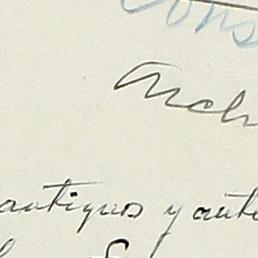 Cons
Arch
antiguos y auté